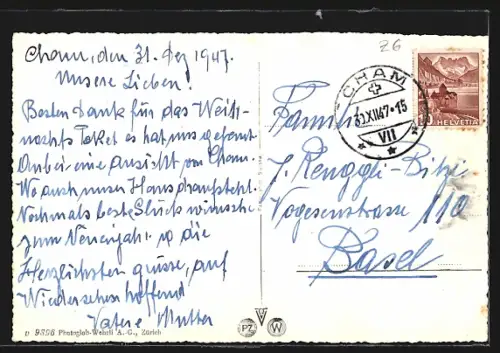 Cham, den 31. Dez 1947.
Unsere Lieben!
Besten Dank für das Weih-
nachts Paket es hat uns gefreut
Anbei eine Ansicht von Cham.
Wo auch unser Haus draufsteht.
Nochmals beste Glück wünsche
zum Neuenjahr. u die
Herzlichsten Grüsse, auf
Wiedersehen hoffend
Vater u Mutter
D 9396 Photoglob-Wehrli A. G., Zürich
PZ W
26
CHAM
31.XII.47-15
VII
HELVETIA
Familie
J. Renggli-Bitzi
Vogesenstrasse 110
Basel